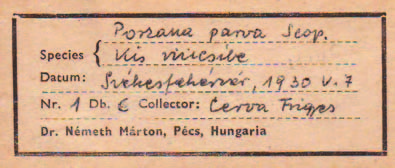 Porzana parva Scop.
Species { Kis vizicsibe
Datum: Székesfehérvár, 1930 V. 7
Nr. 1 Db. 6 Collector: Cerva Frigyes
Dr. Németh Márton, Pécs, Hungaria